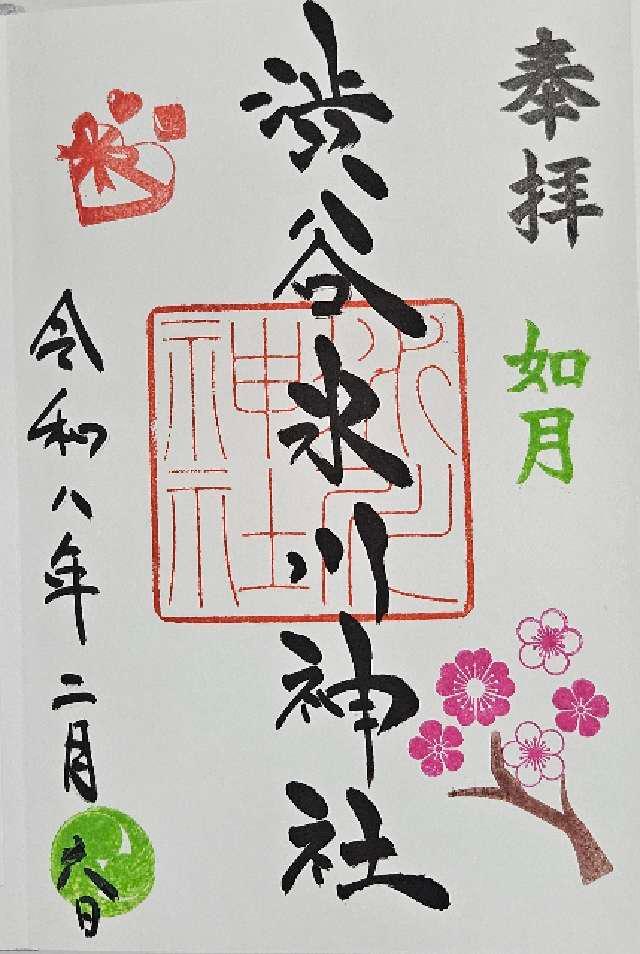 奉拝
如月
渋谷氷川神社
氷川
神社
令和八年二月六日